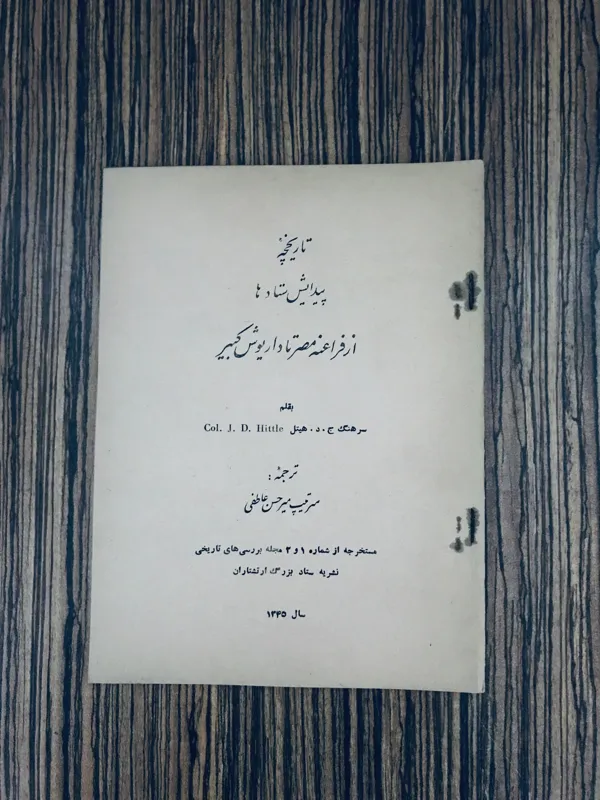 تاریخچهٔ
پیدایش ستادها
از فراعنه مصر تا داریوش کبیر
بقلم
سرهنگ ج . د . هیتل Col. J. D. Hittle
ترجمهٔ :
سرتیپ میرحسن عاطفی
مستخرجه از شماره ۱ و ۲ مجله بررسی‌های تاریخی
نشریه ستاد بزرگ ارتشتاران
سال ۱۳۴۵